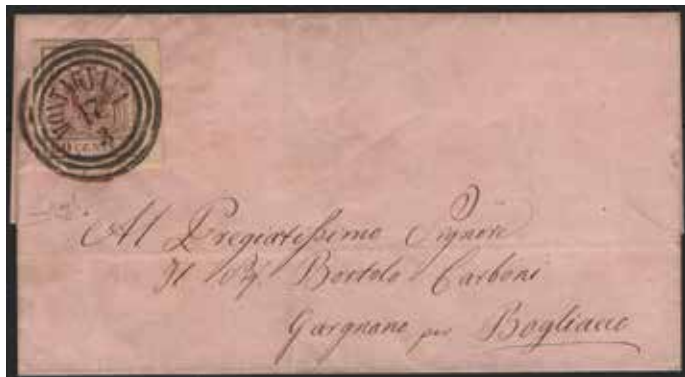 MONTAGNANA
17
3
CENT
Al Pregiatissimo Signore
Il Sig. Bortolo Carboni
Gargnano per Bogliaco